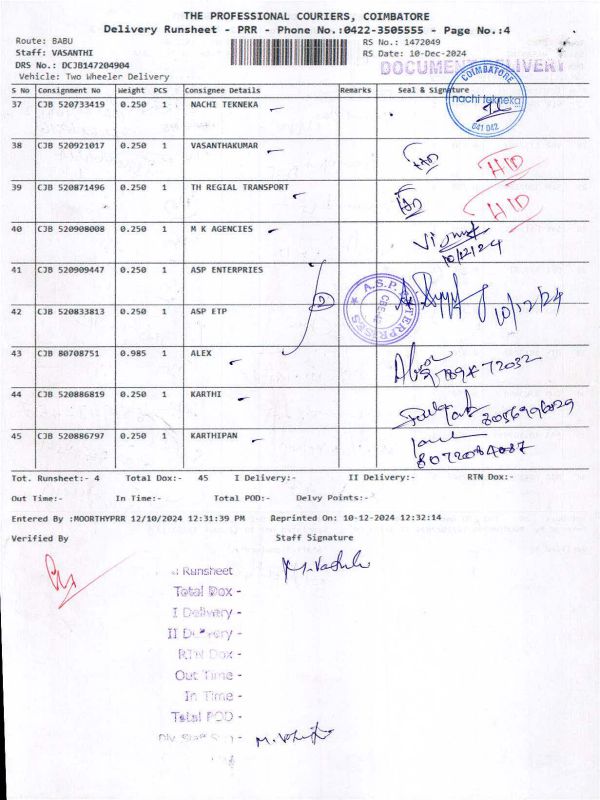 THE PROFESSIONAL COURIERS, COIMBATORE
Delivery Runsheet - PRR - Phone No.:0422-3505555 - Page No.:4
Route: BABU RS No.: 1472049
Staff: VASANTHI RS Date: 10-Dec-2024
DRS No.: DCJB147204904 DOCUMENT DELIVERY
Vehicle: Two Wheeler Delivery
S No Consignment No Weight PCS Consignee Details Remarks Seal & Signature
COIMBATORE
nachi tekneka
641 042
37 CJB 520733419 0.250 1 NACHI TEKNEKA
38 CJB 520921017 0.250 1 VASANTHAKUMAR HID
39 CJB 520871496 0.250 1 TH REGIAL TRANSPORT HID
40 CJB 520908008 0.250 1 M K AGENCIES
10/12/24
41 CJB 520909447 0.250 1 ASP ENTERPRIES
2
A.S.P. ENTERPRISES
10/12/24
42 CJB 520833813 0.250 1 ASP ETP
43 CJB 80708751 0.985 1 ALEX
44 CJB 520886819 0.250 1 KARTHI 8056996029
45 CJB 520886797 0.250 1 KARTHIPAN
8072084087
Tot. Runsheet:- 4 Total Dox:- 45 I Delivery:- II Delivery:- RTN Dox:-
Out Time:- In Time:- Total POD:- Delvy Points:-
Entered By :MOORTHYPRR 12/10/2024 12:31:39 PM Reprinted On: 10-12-2024 12:32:14
Verified By Staff Signature
Runsheet
Total Dox -
I Delivery -
II Delivery -
RTN Dox -
Out Time -
In Time -
Total POD -